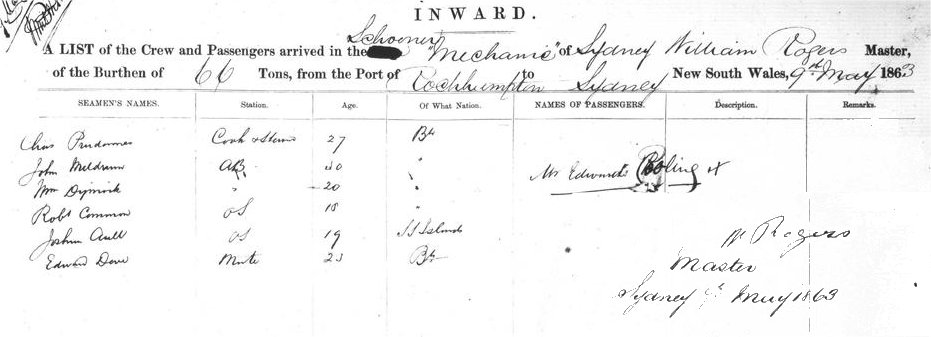 INWARD.
Schooner
A LIST of the Crew and Passengers arrived in the "Mechanic" of Sydney William Rogers Master,
of the Burthen of 66 Tons, from the Port of Rockhumpton to Sydney New South Wales, 9th May 1863
SEAMEN'S NAMES. Station. Age. Of What Nation. NAMES OF PASSENGERS. Description. Remarks.
Chas Prudames Cook & Steward 27 Bh
John Meldrum AB 30 "
Wm Dymock " 20 " Mr Edwards
Robt Common OS 18 "
Joshua OS 19 SS Islands
Edward Dove Mate 23 Bh
W Rogers
Master
Sydney 9th May 1863